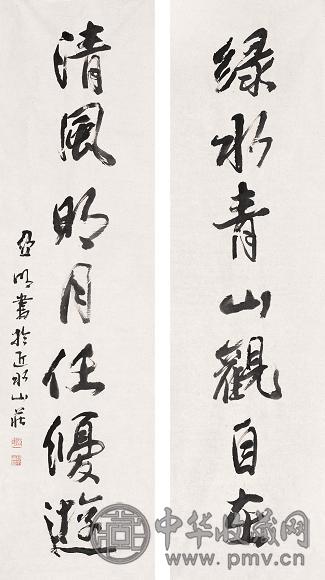 绿水青山觀自在
清風明月任優遊
亞明書於近水山莊
中华收藏网
www.pmv.cn